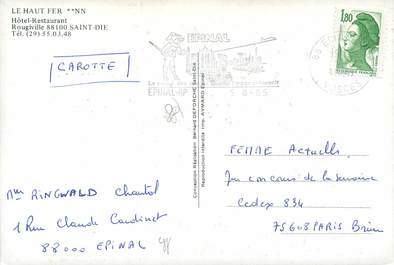 LE HAUT FER **NN
Hôtel-Restaurant
Rougiville 88100 SAINT-DIE
Tél. (29) 55.03.48
CAROTTE
EPINAL
EPINAL-RP
5-8-85
1,80
Conception Réalisation Bernard DEFORCHE Saint-Dié
Reproduction interdite Imp. AYMARD Epinal
Mme RINGWALD Chantal
1 Rue Claude Cardinet
88000 EPINAL
FEMME Actuelle
Jeu concours de la semaine
Cedex 834
75608 PARIS Brune